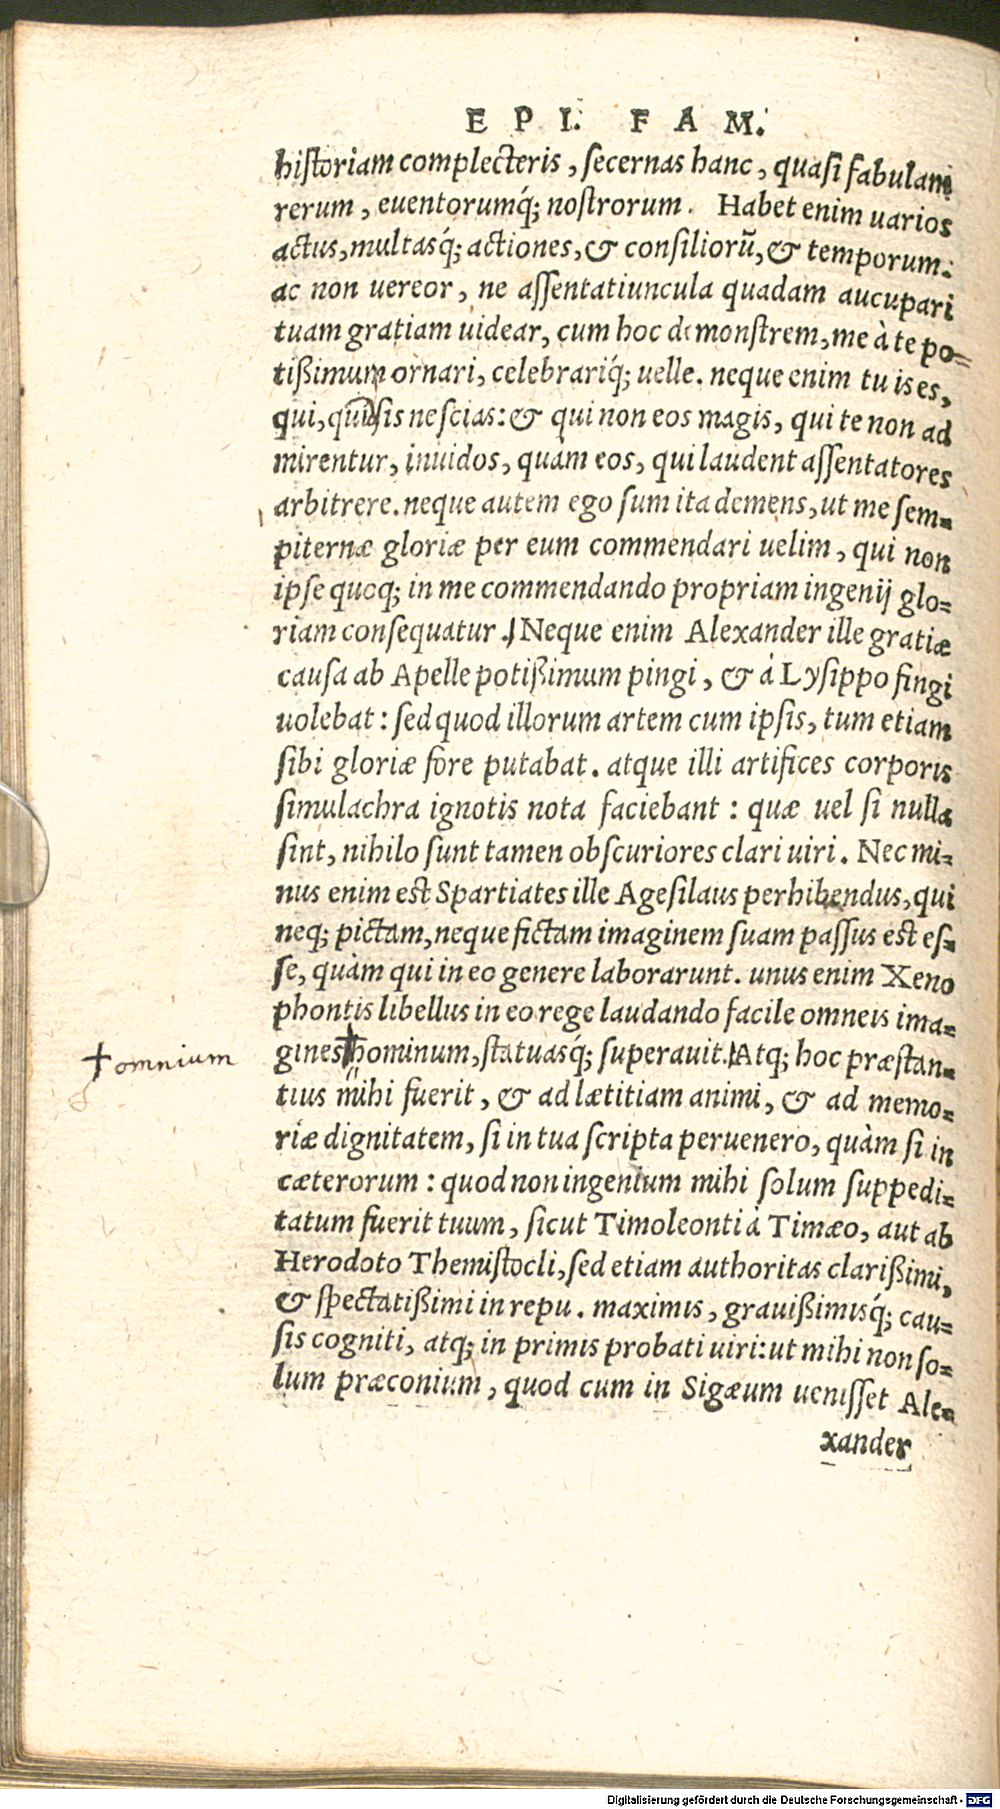 EPI. FAM.
historiam complecteris, secernas hanc, quasi fabulam
rerum, euentorumq́; nostrorum. Habet enim uarios
actus, multasq́; actiones, & consiliorũ, & temporum:
ac non uereor, ne assentatiuncula quadam aucupari
tuam gratiam uidear, cum hoc demonstrem, me à te po=
tißimum ornari, celebrariq́; uelle. neque enim tu is es,
qui, qui sis nescias: & qui non eos magis, qui te non ad
mirentur, inuidos, quam eos, qui laudent assentatores
arbitrere. neque autem ego sum ita demens, ut me sem=
piternæ gloriæ per eum commendari uelim, qui non
ipse quoq; in me commendando propriam ingenij glo=
riam consequatur. Neque enim Alexander ille gratiæ
causa ab Apelle potißimum pingi, & à Lysippo fingi
uolebat: sed quod illorum artem cum ipsis, tum etiam
sibi gloriæ fore putabat. atque illi artifices corporis
simulachra ignotis nota faciebant: quæ uel si nulla
sint, nihilo sunt tamen obscuriores clari uiri. Nec mi=
nus enim est Spartiates ille Agesilaus perhibendus, qui
neq; pictam, neque fictam imaginem suam passus est es=
se, quàm qui in eo genere laborarunt. unus enim Xeno
phontis libellus in eo rege laudando facile omneis ima=
gines hominum, statuasq́; superauit. Atq; hoc præstan=
✝ omnium
tius mihi fuerit, & ad lætitiam animi, & ad memo=
riæ dignitatem, si in tua scripta peruenero, quàm si in
cæterorum: quod non ingenium mihi solum suppedi=
tatum fuerit tuum, sicut Timoleonti à Timæo, aut ab
Herodoto Themistocli, sed etiam authoritas clarißimi,
& spectatißimi in repu. maximis, grauißimisq́; cau=
sis cogniti, atq; in primis probati uiri: ut mihi non so=
lum præconium, quod cum in Sigæum uenisset Ale=
xander
Digitalisierung gefördert durch die Deutsche Forschungsgemeinschaft - DFG